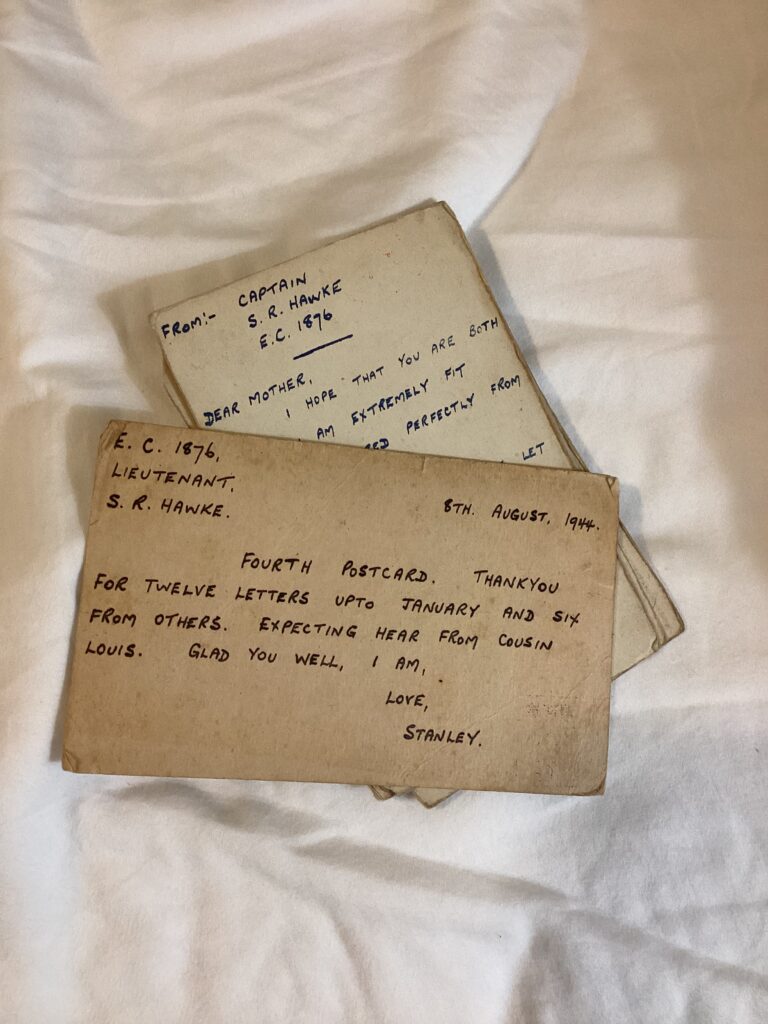 FROM:- CAPTAIN
S. R. HAWKE
E.C. 1876
DEAR MOTHER,
I HOPE THAT YOU ARE BOTH
AM EXTREMELY FIT
PERFECTLY FROM
LET
E. C. 1876,
LIEUTENANT,
S. R. HAWKE.
8TH. AUGUST, 1944.
FOURTH POSTCARD. THANKYOU
FOR TWELVE LETTERS UPTO JANUARY AND SIX
FROM OTHERS. EXPECTING HEAR FROM COUSIN
LOUIS. GLAD YOU WELL, I AM,
LOVE,
STANLEY.